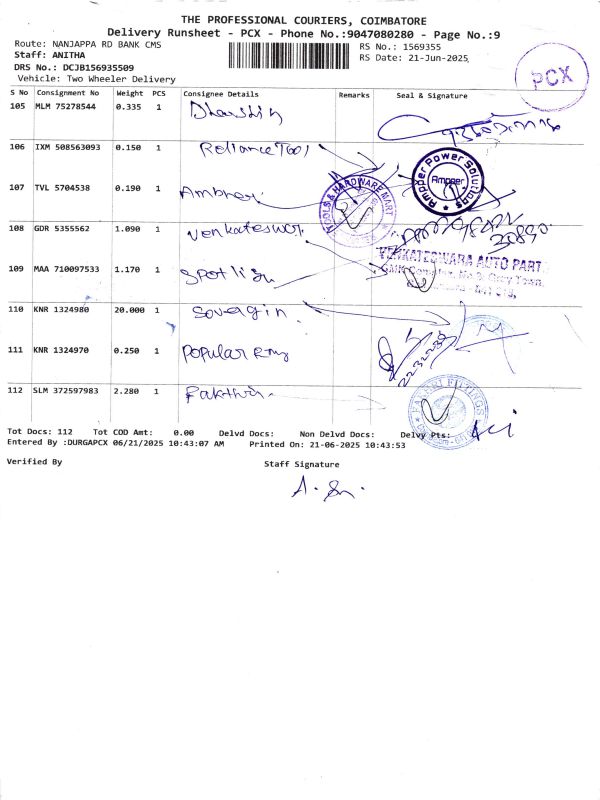 THE PROFESSIONAL COURIERS, COIMBATORE
Delivery Runsheet - PCX - Phone No.:9047080280 - Page No.:9
Route: NANJAPPA RD BANK CMS
RS No.: 1569355
Staff: ANITHA
RS Date: 21-Jun-2025
DRS No.: DCJB156935509
Vehicle: Two Wheeler Delivery
PCX
S No Consignment No Weight PCS Consignee Details Remarks Seal & Signature
105 MLM 75278544 0.335 1
106 IXM 508563093 0.150 1 Reliance Tool
Ampeer Power Solutions
Ampeer
107 TVL 5704538 0.190 1
TOOLS & HARDWARE MART
108 GDR 5355562 1.090 1 Venkateswar
VENKATESWARA AUTO PART
109 MAA 710097533 1.170 1
110 KNR 1324980 20.000 1 Soveragin
111 KNR 1324970 0.250 1 Popular Eng
112 SLM 372597983 2.280 1
FITTINGS
Tot Docs: 112 Tot COD Amt: 0.00 Delvd Docs: Non Delvd Docs: Delvy Pts:
Entered By :DURGAPCX 06/21/2025 10:43:07 AM Printed On: 21-06-2025 10:43:53
Verified By
Staff Signature